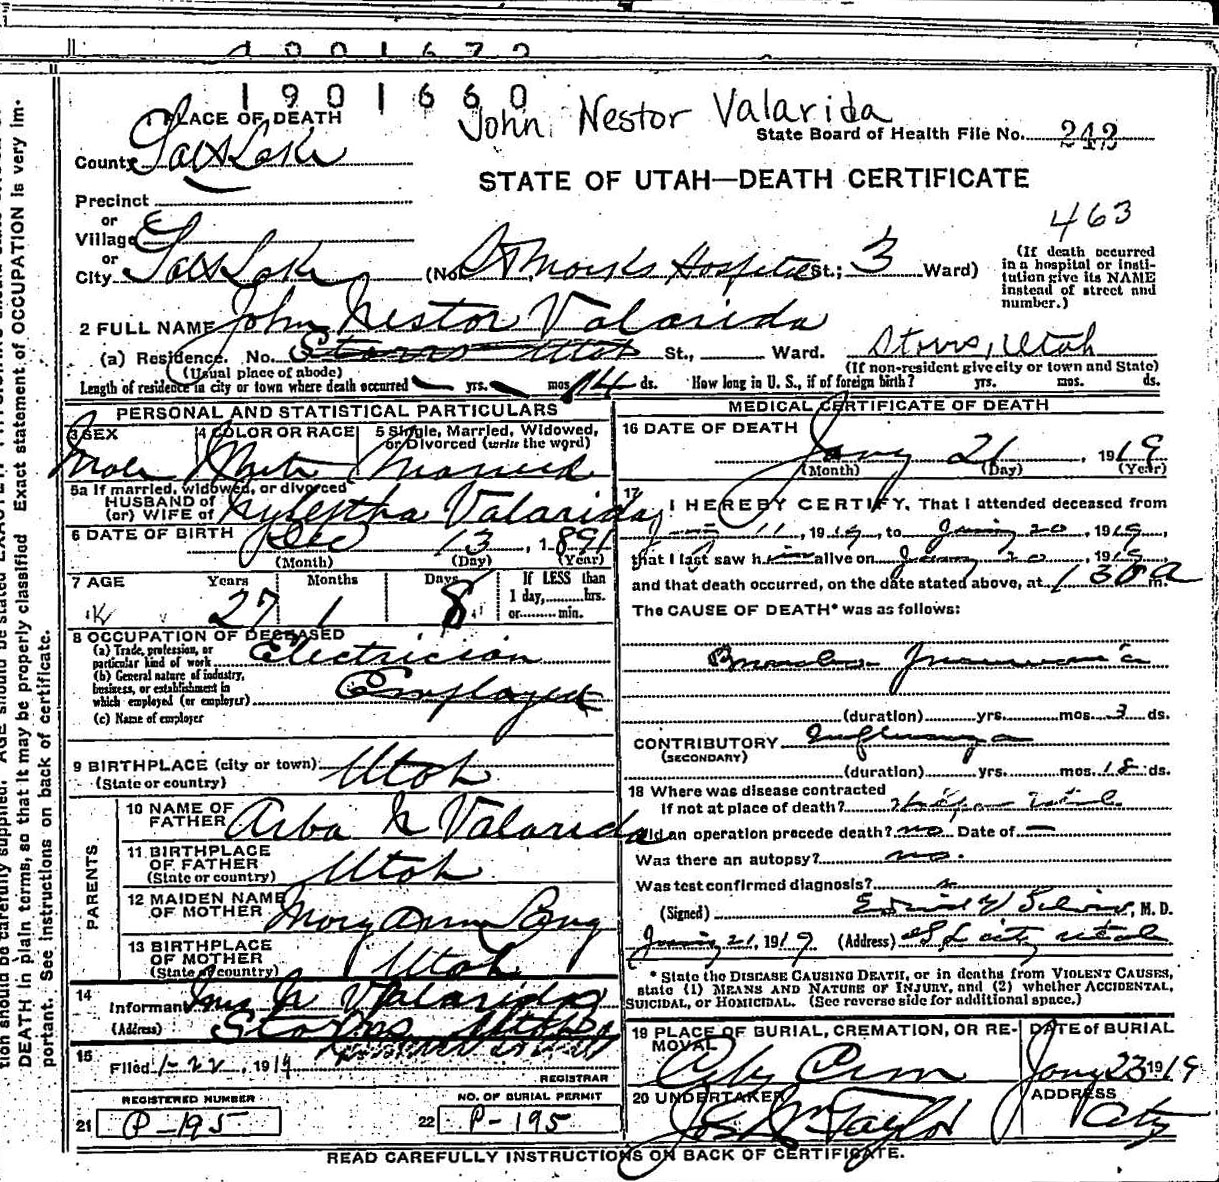 1901672
1901660
John Nestor Valarida
1 PLACE OF DEATH
State Board of Health File No. 242
County Salt Lake
STATE OF UTAH—DEATH CERTIFICATE
Precinct
or
Village
463
or
City Salt Lake (No. St Marks Hospital St.; 3 Ward)
(If death occurred
in a hospital or insti-
tution give its NAME
instead of street and
number.)
2 FULL NAME John Nestor Valarida
(a) Residence. No. Storrs Utah St., Ward. Storrs, Utah
(Usual place of abode) (If non-resident give city or town and State)
Length of residence in city or town where death occurred — yrs. — mos. 14 ds. How long in U. S., if of foreign birth? yrs. mos. ds.
PERSONAL AND STATISTICAL PARTICULARS
3 SEX 4 COLOR OR RACE 5 Single, Married, Widowed,
or Divorced (write the word)
Male White Married
5a If married, widowed, or divorced
HUSBAND of
(or) WIFE of Valarida
6 DATE OF BIRTH Dec 13, 1891
(Month) (Day) (Year)
7 AGE Years Months Days If LESS than
1 day, hrs.
27 1 8 or min.
8 OCCUPATION OF DECEASED
(a) Trade, profession, or
particular kind of work Electrician
(b) General nature of industry,
business, or establishment in
which employed (or employer)
(c) Name of employer
9 BIRTHPLACE (city or town)
(State or country) Utah
PARENTS
10 NAME OF
FATHER Arba N Valarida
11 BIRTHPLACE
OF FATHER
(State or country) Utah
12 MAIDEN NAME
OF MOTHER Mary Ann
13 BIRTHPLACE
OF MOTHER
(State or country) Utah
14
Informant N Valarida
(Address) Storrs Utah
15
Filed 1-22, 1919
REGISTRAR
REGISTERED NUMBER NO. OF BURIAL PERMIT
21 P-195 22 P-195
MEDICAL CERTIFICATE OF DEATH
16 DATE OF DEATH
Jany 21, 1919
(Month) (Day) (Year)
17
I HEREBY CERTIFY, That I attended deceased from
11, 1919, to Jany 20, 1919,
that I last saw him alive on Jany 20, 1919,
and that death occurred, on the date stated above, at m.
The CAUSE OF DEATH* was as follows:
Broncho Pneumonia
(duration) yrs. mos. 3 ds.
CONTRIBUTORY Influenza
(SECONDARY)
(duration) yrs. mos. 18 ds.
18 Where was disease contracted
if not at place of death? Utah
Did an operation precede death? no Date of —
Was there an autopsy? no.
Was test confirmed diagnosis?
(Signed) , M. D.
Jany 21, 1919 (Address) S L City Utah
* State the DISEASE CAUSING DEATH, or in deaths from VIOLENT CAUSES,
state (1) MEANS AND NATURE OF INJURY, and (2) whether ACCIDENTAL,
SUICIDAL, or HOMICIDAL. (See reverse side for additional space.)
19 PLACE OF BURIAL, CREMATION, OR RE-
MOVAL
DATE of BURIAL
City Cem Jany 23 1919
20 UNDERTAKER ADDRESS
Jos Wm Taylor City
READ CAREFULLY INSTRUCTIONS ON BACK OF CERTIFICATE.
tion should be carefully supplied. AGE should be stated EXACTLY.
DEATH in plain terms, so that it may be properly classified Exact statement of OCCUPATION is very im-
portant. See instructions on back of certificate.